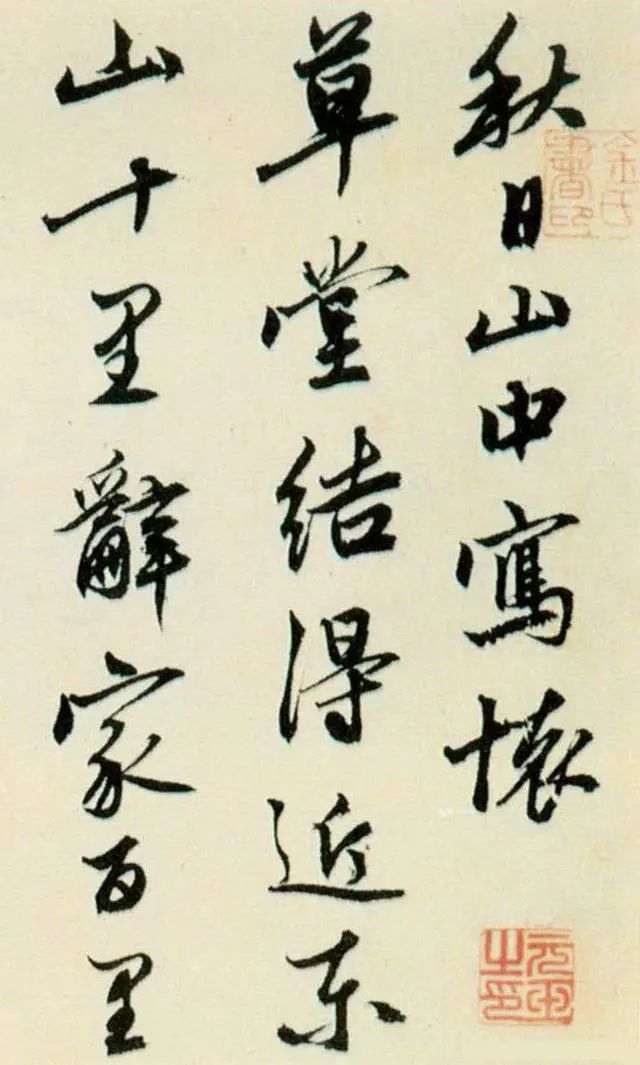 秋日山中寫懷
草堂結得近東
山十里辭家百里